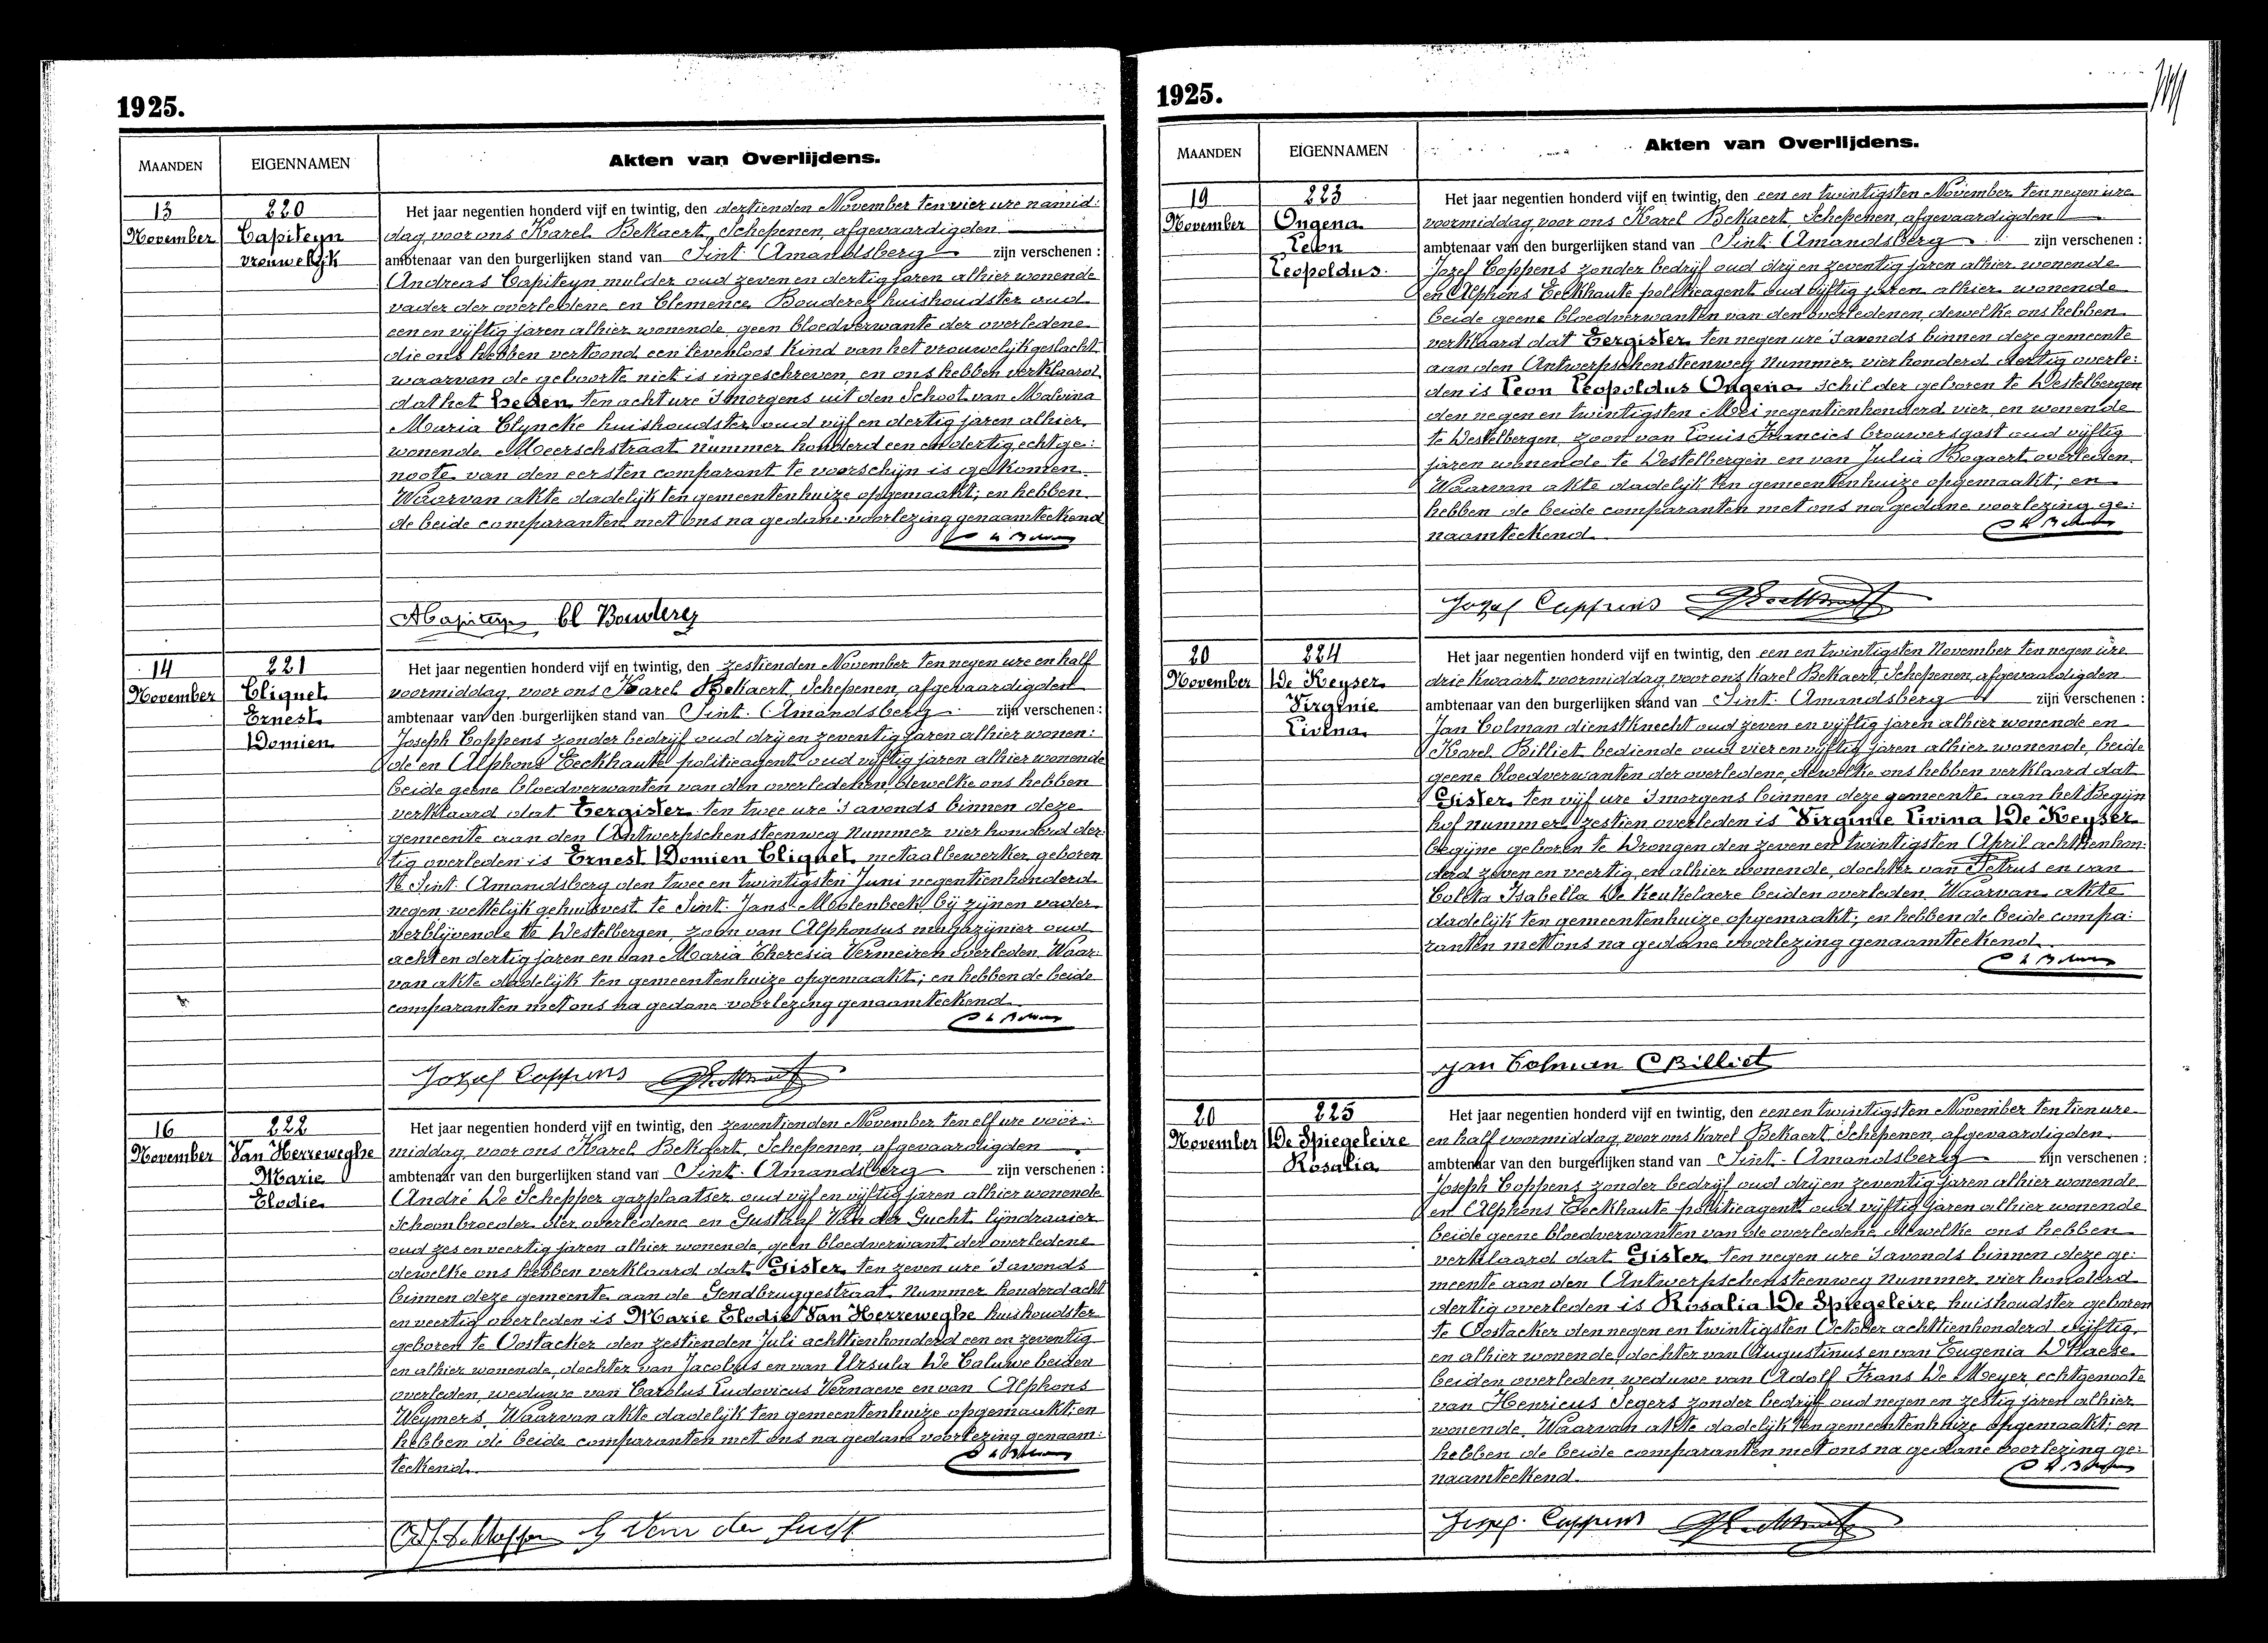 1925.
MAANDEN EIGENNAMEN Akten van Overlijdens.
13 220
November Capiteyn
vrouwelijk
Het jaar negentien honderd vijf en twintig, den dertienden November ten vier ure namid:
dag voor ons Karel Bekaert, Schepenen, afgevaardigden
ambtenaar van den burgerlijken stand van Sint. Amandsberg zijn verschenen :
Andreas Capiteyn mulder oud zeven en dertig jaren alhier wonende
vader der overledene en Clemence Bouderez huishoudster oud
een en vijftig jaren alhier wonende, geen bloedverwante der overledene
die ons hebben vertoond een levenloos kind van het vrouwelijk geslacht
waarvan de geboorte niet is ingeschreven, en ons hebben verklaard
dat het heden ten acht ure 's morgens uit den schoot van Malvina
Maria Clyncke huishoudster oud vijf en dertig jaren alhier
wonende Meerschstraat nummer honderd een en dertig echtge:
noote van den eersten comparant te voorschijn is gekomen.
Waarvan akte dadelijk ten gemeentenhuize opgemaakt; en hebben
de beide comparanten met ons na gedane voorlezing genaamteekend
ACapiteyn Cl Bouderez
14 221
November Cliquet
Ernest
Domien
Het jaar negentien honderd vijf en twintig, den zestienden November ten negen ure en half
voormiddag, voor ons Karel Bekaert, Schepenen, afgevaardigden
ambtenaar van den burgerlijken stand van Sint. Amandsberg zijn verschenen :
Joseph Coppens zonder bedrijf oud drij en zeventig jaren alhier wonen:
de en Alphons Eeckhaute politieagent oud vijftig jaren alhier wonende
beide geene bloedverwanten van den overledenen, dewelke ons hebben
verklaard dat Eergister ten twee ure 's avonds binnen deze
gemeente aan den Antwerpschensteenweg nummer vier honderd der:
tig overleden is Ernest Domien Cliquet metaalbewerker geboren
te Sint. Amandsberg den twee en twintigsten Juni negentienhonderd
negen wettelijk gehuisvest te Sint. Jans-Molenbeek bij zijnen vader
verblijvende te Destelbergen, zoon van Alphonsus magazijnier oud
acht en dertig jaren en van Maria Theresia Vermeiren overleden. Waar:
van akte dadelijk ten gemeentenhuize opgemaakt; en hebben de beide
comparanten met ons na gedane voorlezing genaamteekend
Jozef Coppens
16 222
November Van Herreweghe
Marie
Elodie
Het jaar negentien honderd vijf en twintig, den zeventienden November ten elf ure voor:
middag, voor ons Karel Bekaert, Schepenen, afgevaardigden
ambtenaar van den burgerlijken stand van Sint. Amandsberg zijn verschenen :
André De Schepper gazplaatser oud vijf en vijftig jaren alhier wonende
schoonbroeder der overledene en Gustaaf Van der Gucht lijndraaier
oud zes en veertig jaren alhier wonende, geen bloedverwant der overledene
dewelke ons hebben verklaard dat Gister ten zeven ure 's avonds
binnen deze gemeente aan de Gendbruggestraat nummer honderd acht
en veertig overleden is Marie Elodie Van Herreweghe huishoudster
geboren te Oostacker den zestienden Juli achttienhonderd een en zeventig
en alhier wonende, dochter van Jacobus en van Ursula De Caluwe beiden
overleden, weduwe van Carolus Ludovicus Vernaeve en van Alphons
Weymers. Waarvan akte dadelijk ten gemeentenhuize opgemaakt; en
hebben de beide comparanten met ons na gedane voorlezing genaam:
teekend.
G Van der Gucht
1925.
MAANDEN EIGENNAMEN Akten van Overlijdens.
19 223
November Ongena
Leon
Leopoldus
Het jaar negentien honderd vijf en twintig, den een en twintigsten November ten negen ure
voormiddag voor ons Karel Bekaert, Schepenen, afgevaardigden
ambtenaar van den burgerlijken stand van Sint. Amandsberg zijn verschenen :
Jozef Coppens zonder bedrijf oud drij en zeventig jaren alhier wonende
en Alphons Eeckhaute politieagent oud vijftig jaren alhier wonende
beide geene bloedverwanten van den overledenen, dewelke ons hebben
verklaard dat Eergister ten negen ure 's avonds binnen deze gemeente
aan den Antwerpschensteenweg nummer vier honderd dertig overle:
den is Leon Leopoldus Ongena schilder geboren te Destelbergen
den negen en twintigsten Mei negentienhonderd vier, en wonende
te Destelbergen, zoon van Louis Francies brouwersgast oud vijftig
jaren wonende te Destelbergen en van Julia Bogaert overleden.
Waarvan akte dadelijk ten gemeentenhuize opgemaakt; en
hebben de beide comparanten met ons na gedane voorlezing ge:
naamteekend.
Jozef Coppens
20 224
November De Keyser
Virginie
Livina
Het jaar negentien honderd vijf en twintig, den een en twintigsten November ten negen ure
drie kwaart voormiddag voor ons Karel Bekaert, Schepenen, afgevaardigden
ambtenaar van den burgerlijken stand van Sint. Amandsberg zijn verschenen :
Jan Colman dienstknecht oud zeven en vijftig jaren alhier wonende en
Karel Billiet bediende oud vier en vijftig jaren alhier wonende, beide
geene bloedverwanten der overledene, dewelke ons hebben verklaard dat
Gister ten vijf ure 's morgens binnen deze gemeente aan het Begijn
hof nummer zestien overleden is Virginie Livina De Keyser
begijne geboren te Drongen den zeven en twintigsten April achttienhon:
derd zeven en veertig en alhier wonende, dochter van Petrus en van
Coleta Isabella De Keukelaere beiden overleden. Waarvan akte
dadelijk ten gemeentenhuize opgemaakt; en hebben de beide compa:
ranten met ons na gedane voorlezing genaamteekend
Jan Colman C Billiet
20 225
November De Spiegeleire
Rosalia
Het jaar negentien honderd vijf en twintig, den een en twintigsten November ten tien ure
en half voormiddag voor ons Karel Bekaert Schepenen, afgevaardigden
ambtenaar van den burgerlijken stand van Sint. Amandsberg zijn verschenen :
Joseph Coppens zonder bedrijf oud drij en zeventig jaren alhier wonende
en Alphons Eeckhaute politieagent oud vijftig jaren alhier wonende
beide geene bloedverwanten van de overledene dewelke ons hebben
verklaard dat Gister ten negen ure 's avonds binnen deze ge:
meente aan den Antwerpschensteenweg nummer vier honderd
dertig overleden is Rosalia De Spiegeleire huishoudster geboren
te Oostacker den negen en twintigsten October achttienhonderd vijftig
en alhier wonende, dochter van Augustinus en van Eugenia D'Haese
beiden overleden, weduwe van Adolf Frans De Meyer, echtgenoote
van Henricus Segers zonder bedrijf oud negen en zestig jaren alhier
wonende. Waarvan akte dadelijk ten gemeentenhuize opgemaakt; en
hebben de beide comparanten met ons na gedane voorlezing ge:
naamteekend.
Jozef Coppens